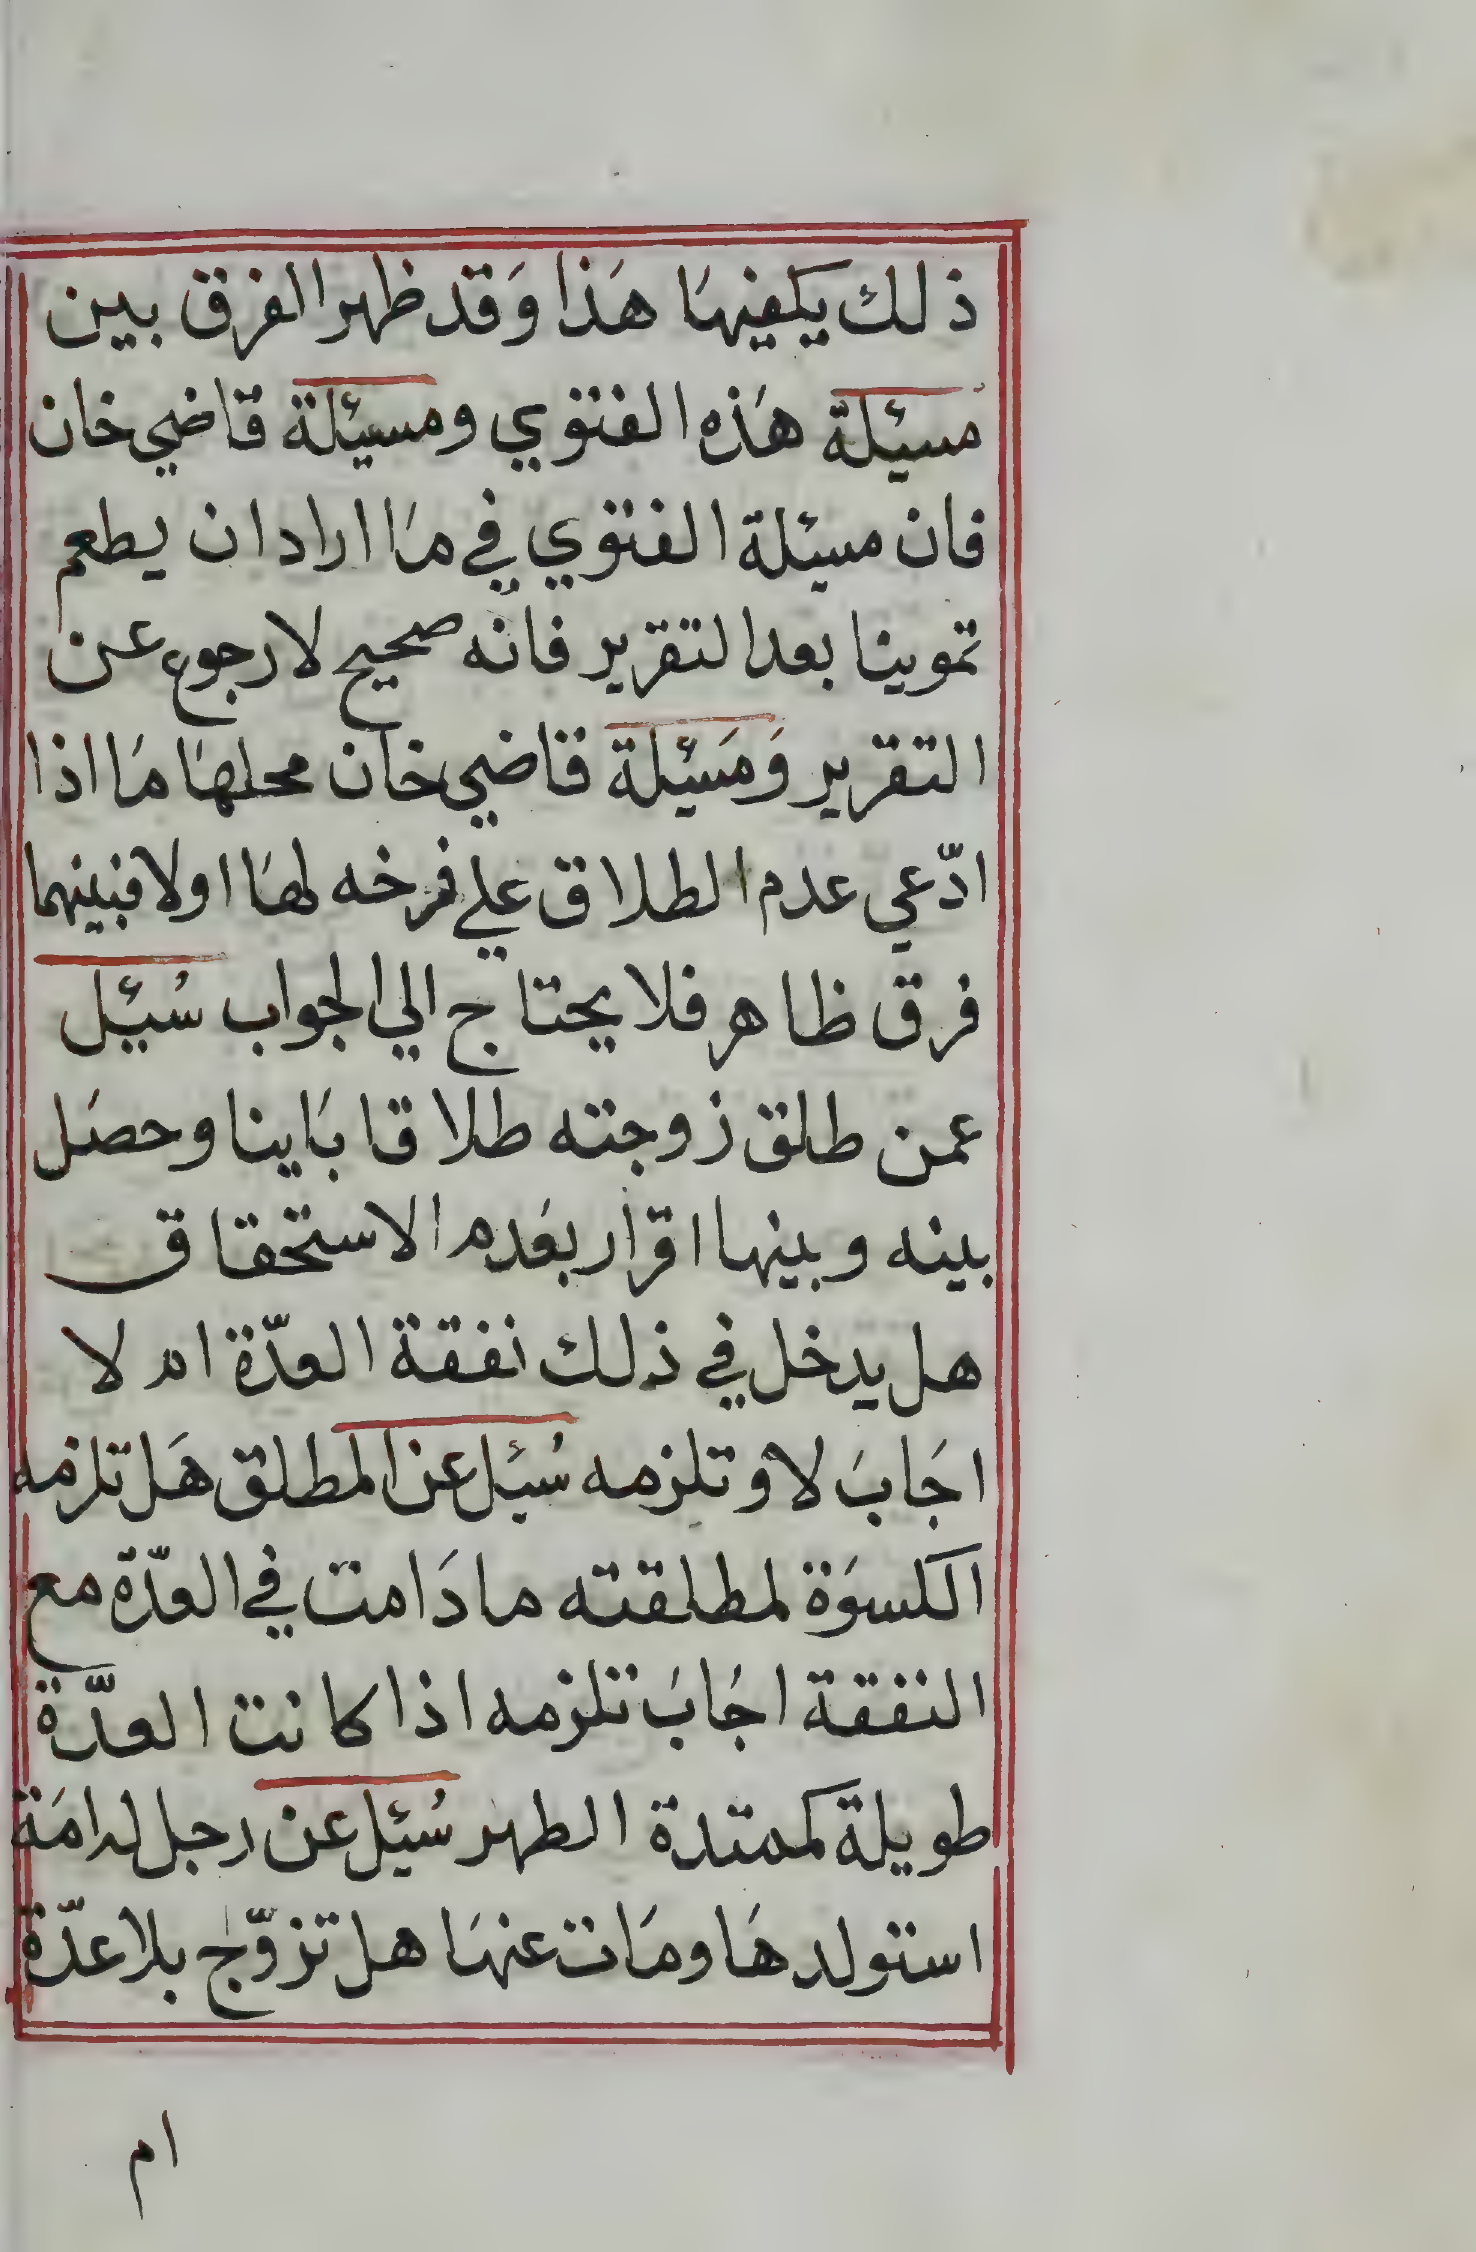 ذلك يكفيها هَذا وَقد ظهر الفرق بين
مسئلة هَذه الفتوي ومسئلة قاضي خان
فان مسئلة الفتوي في مَا اراد ان يطعم
تموينا بعد التقرير فانه صحيح لا رجوع عن
التقرير وَمَسئلة قاضي خان محلهَا مَا اذا
ادّعي عدم الطلاق علي فرخه لهَا اولا فبينهما
فرق ظاهر فلا يحتاج الي الجواب سُئل
عمن طلق زوجته طلاقا بَاينا وحصَل
بينه وبينها اقرار بعَدم الاستحقاق
هل يدخل في ذلك نفقة العدّة ام لا
اجَابَ لا وتلزمه سُئل عن المطلق هَل تلزمه
الكسوَة لمطلقته ما دَامت في العدّة مع
النفقة اجَابَ تلزمه اذا كانت العدَّة
طويلة كممتدة الطهر سُئل عن رجل له امَة
استولدهَا ومَات عنهَا هل تزوّج بلا عدّة
ام